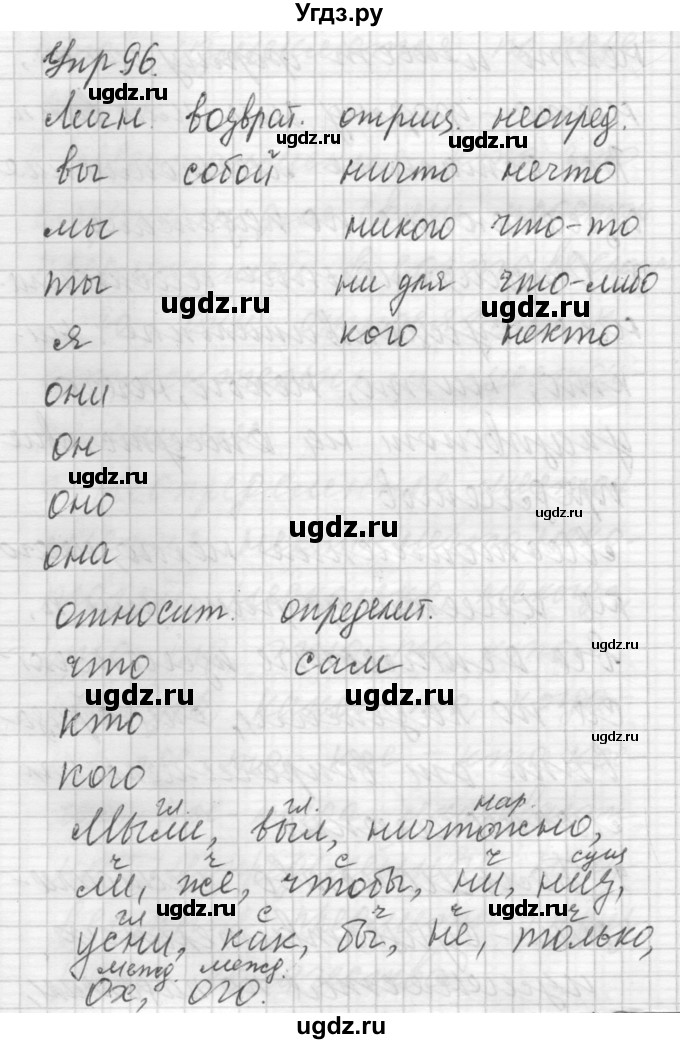 Угдз.ру
Упр 96.
Личн. возврат. отриц. неопред.
вы собой ничто нечто
мы никого что-то
ты ни для что-либо
я кого некто
они
он
оно
она
относит. определит.
что сам
кто
кого
гл. гл. нар.
Мыли, выл, ничтожно,
ч ч с ч сущ
ли, же, чтобы, ни, ниц,
гл с ч ч ч
усни, как, бы, не, только,
межд. межд.
ох, ого.
ugdz.ru
ugdz.ru
ugdz.ru
ugdz.ru
ugdz.ru
ugdz.ru
ugdz.ru
ugdz.ru
ugdz.ru
ugdz.ru
ugdz.ru
ugdz.ru
ugdz.ru
ugdz.ru